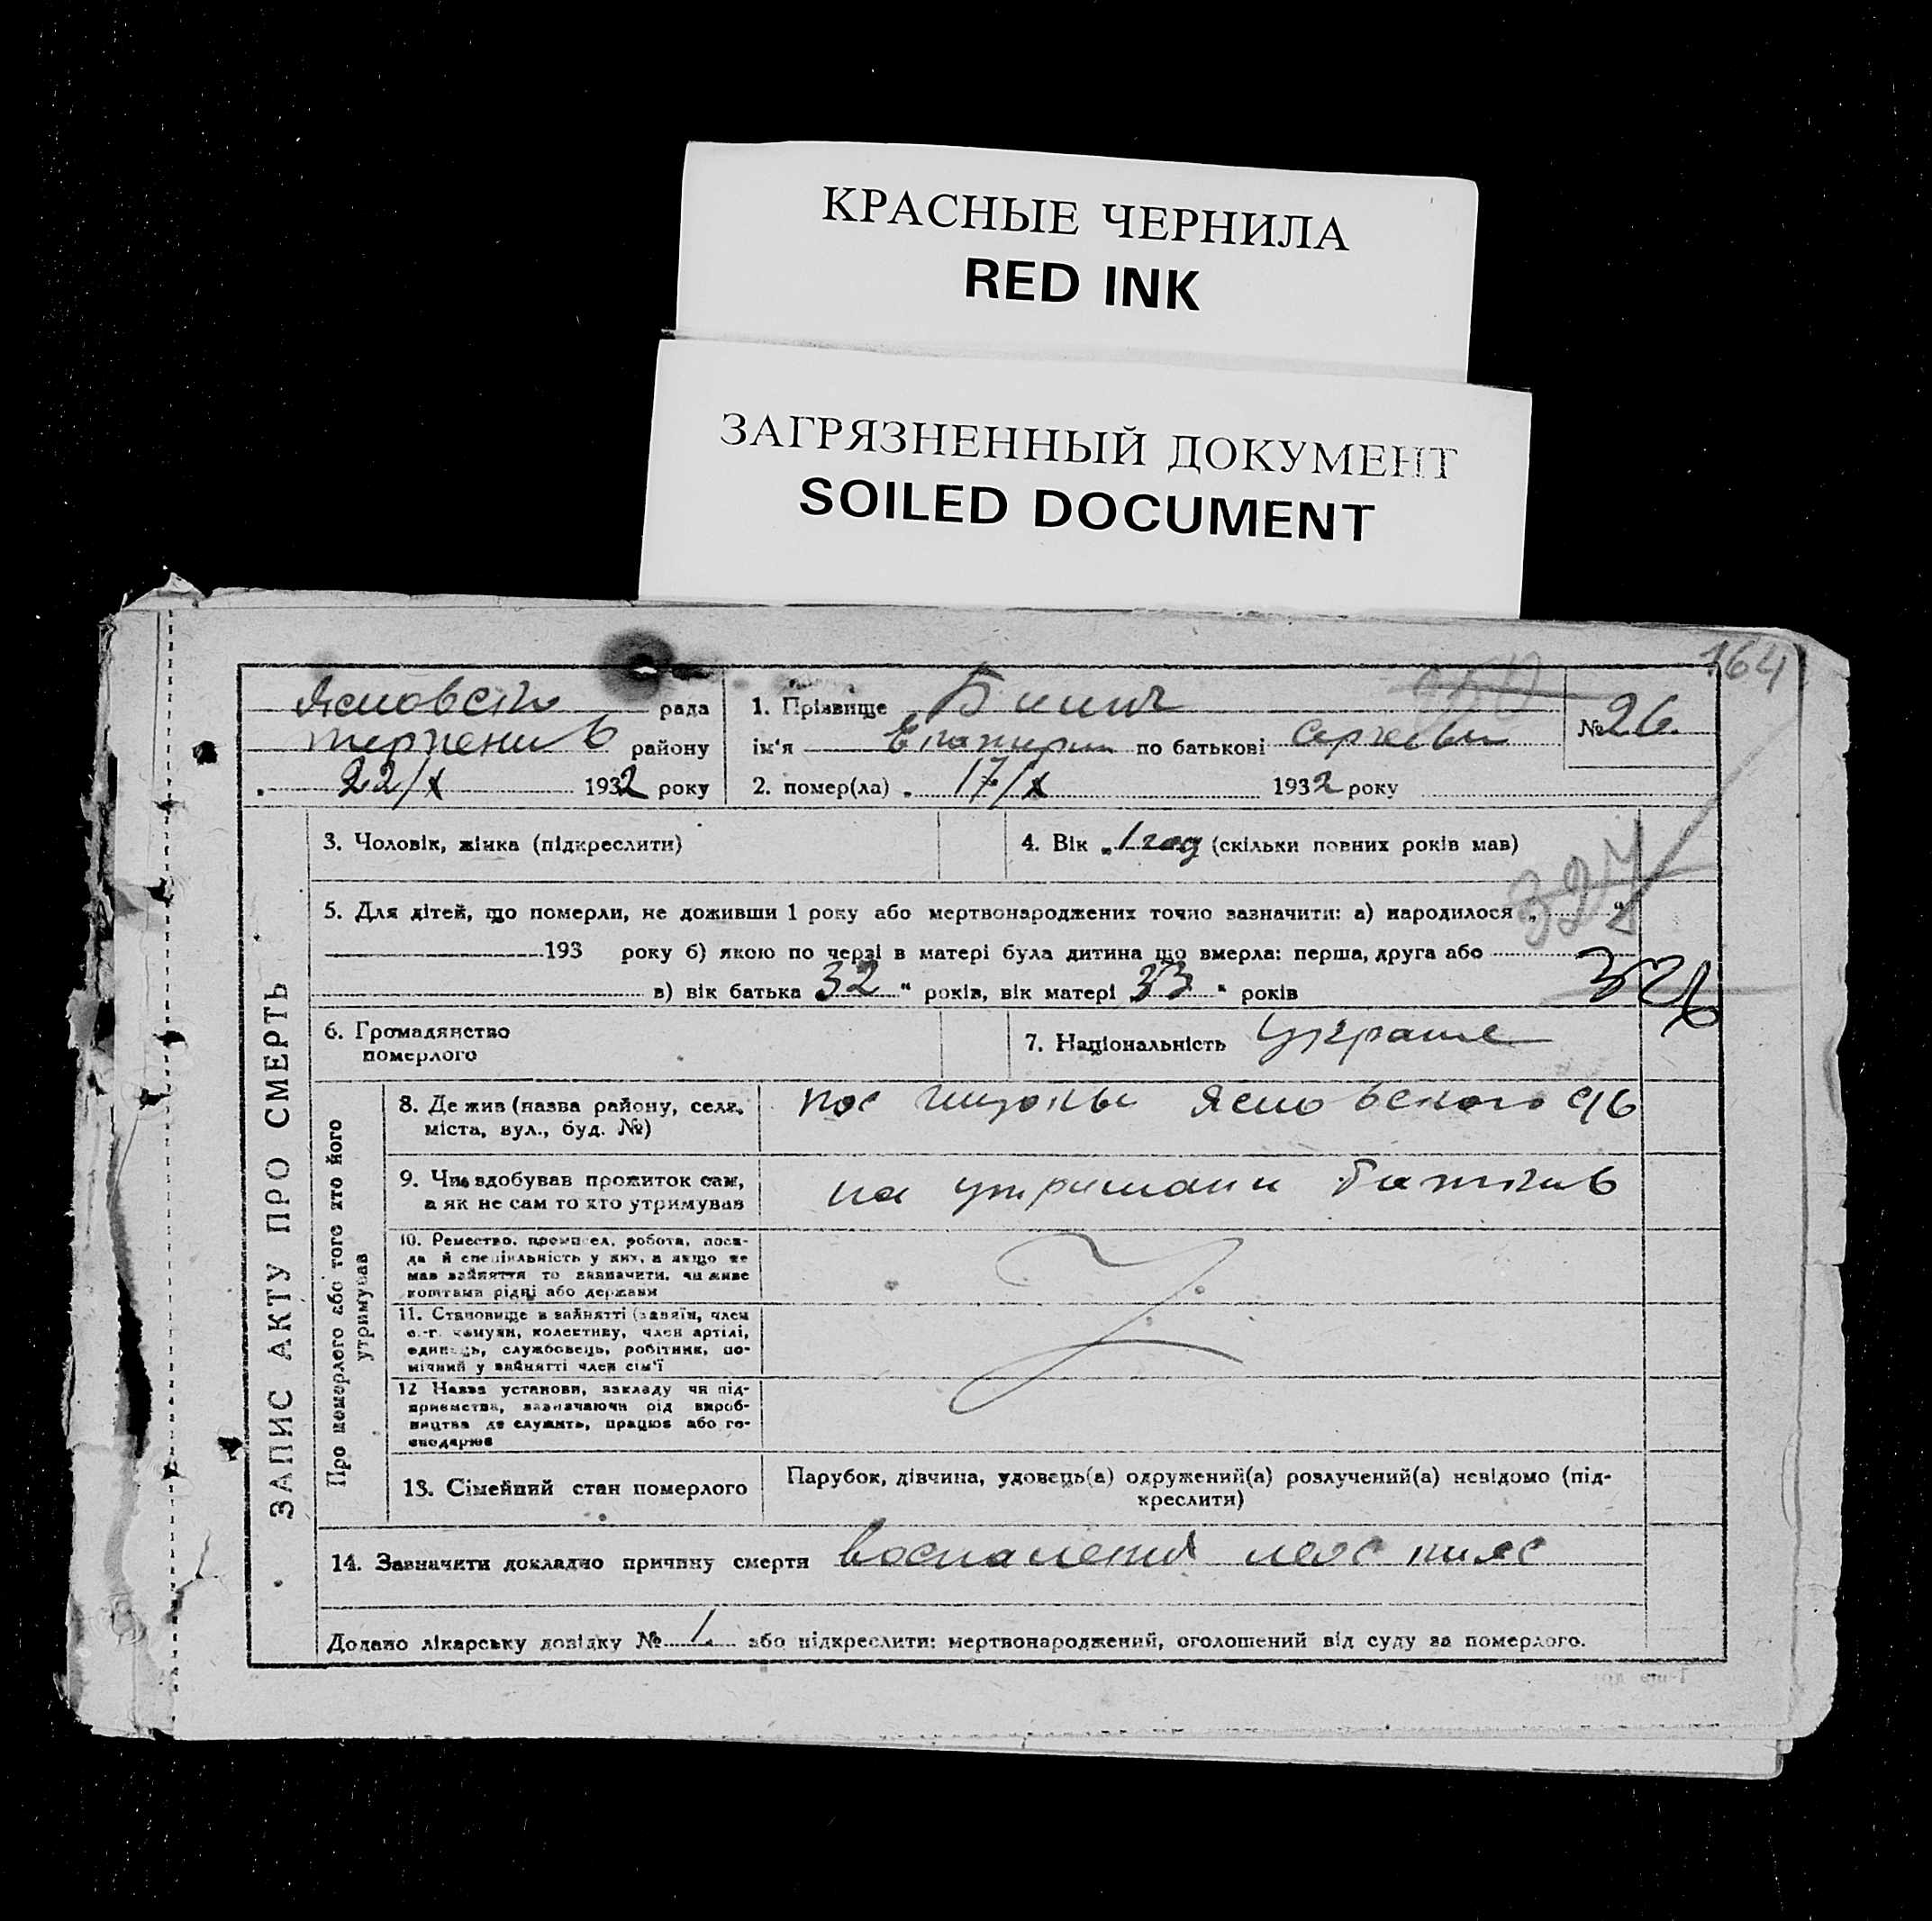 КРАСНЫЕ ЧЕРНИЛА
RED INK
ЗАГРЯЗНЕННЫЙ ДОКУМЕНТ
SOILED DOCUMENT
164
рада
району
22/X 1932 року
1. Прізвище
ім'я по батькові
2. помер(ла) 17/X 1932 року
№ 26.
ЗАПИС АКТУ ПРО СМЕРТЬ
3. Чоловік, жінка (підкреслити)
4. Вік „1 год (скільки повних років мав)
5. Для дітей, що померли, не доживши 1 року або мертвонароджених точно зазначити: а) народилося „ “
193 року б) якою по черзі в матері була дитина що вмерла: перша, друга або
в) вік батька 32 “ років, вік матері 33 “ років
327
326
6. Громадянство
померлого
7. Національність
Про померлого або того хто його
утримував
8. Де жив (назва району, села,
міста, вул., буд. №)
9. Чим здобував прожиток сам,
а як не сам то хто утримував
на утримани батьків
10. Ремество, промисел, робота, поса-
да й спеціяльність у них, а якщо не
мав зайняття то зазначити, чи живе
коштами рідні або держави
11. Становище в зайнятті (хазяїн, член
с.-г. комуни, колективу, член артілі,
одинець, службовець, робітник, по-
мічний у зайнятті член сім'ї
12 Назва установи, закладу чи під-
приємства, зазначаючи рід вироб-
ництва де служить, працює або го-
сподарює
13. Сімейний стан померлого
Парубок, дівчина, удовець(а) одружений(а) розлучений(а) невідомо (під-
креслити)
14. Зазначити докладно причину смерти воспаления
Додано лікарську довідку № 1 або підкреслити: мертвонароджений, оголошений від суду за померлого.